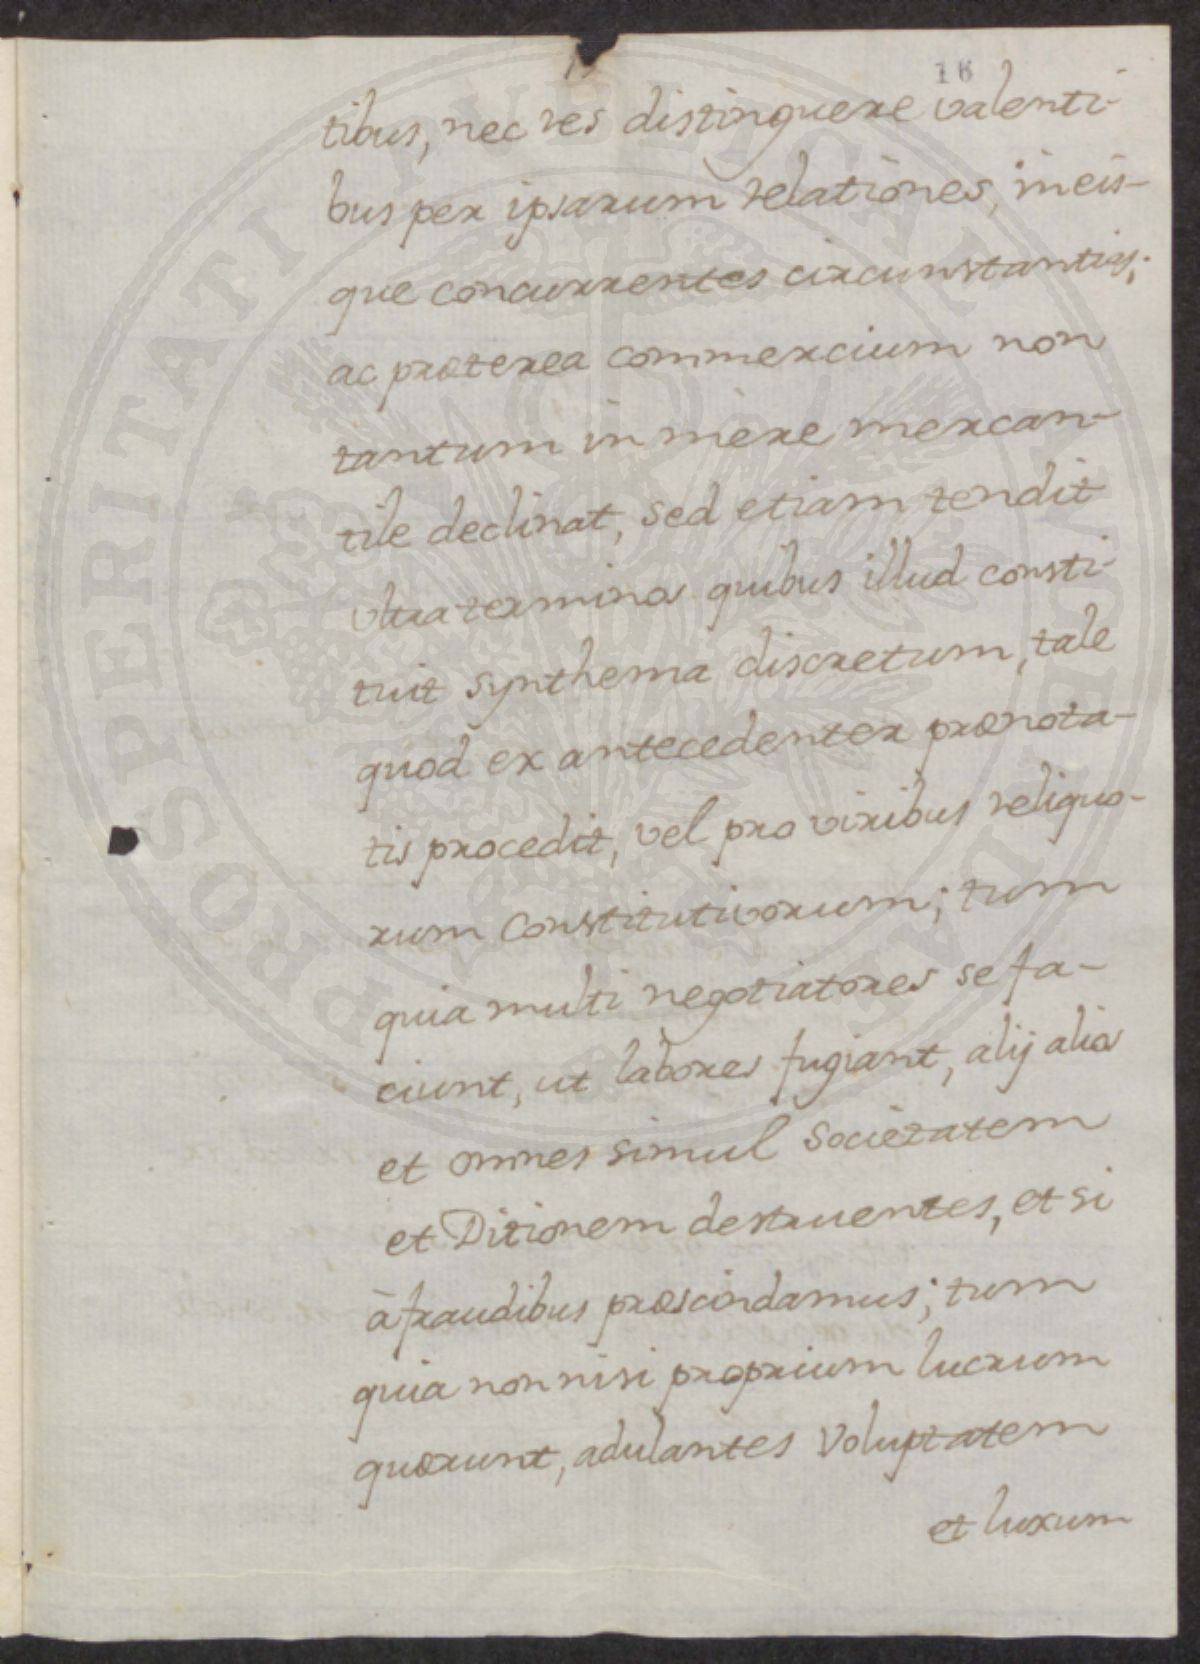 16
tibus, nec res distinguere valenti-
bus per ipsarum relationes, in eis-
que concurrentes circunstantias;
ac præterea commercium non
tantum in mere mercan-
tile declinat, sed etiam tendit
ultra terminos quibus illud consti-
tuit synthema discretum, tale
quod ex antecedenter prænota-
tis procedit, vel pro viribus reliquo-
rum constitutivorum; tum
quia multi negotiatores se fa-
ciunt, ut labores fugiant, alij alios
et omnes simul Societatem
et Ditionem destruentes, et si
à fraudibus præscindamus; tum
quia non nisi proprium lucrum
quærunt, adulantes voluptatem
et luxum
PROSPERITATI PUBLICAE AUGENDAE